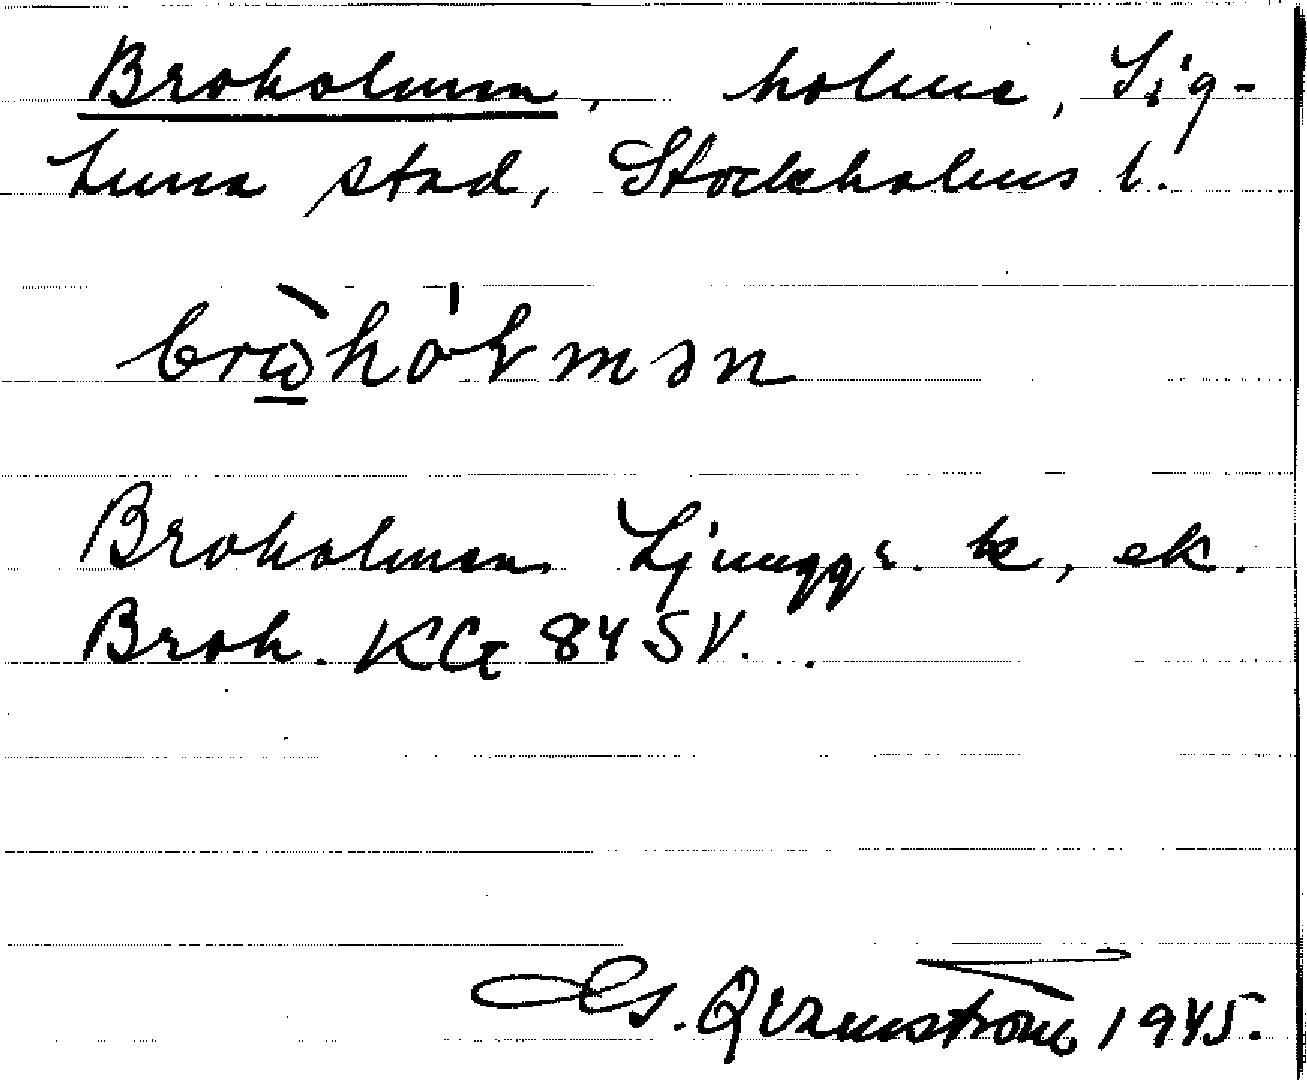 Broholmen, holme, Sig-
tuna stad, Stockholms l.
brὼ̲hólmən
Broholmen Ljunggr. k, ek.
Broh. KG 84 SV.
Gs. Qvarnström 1945.